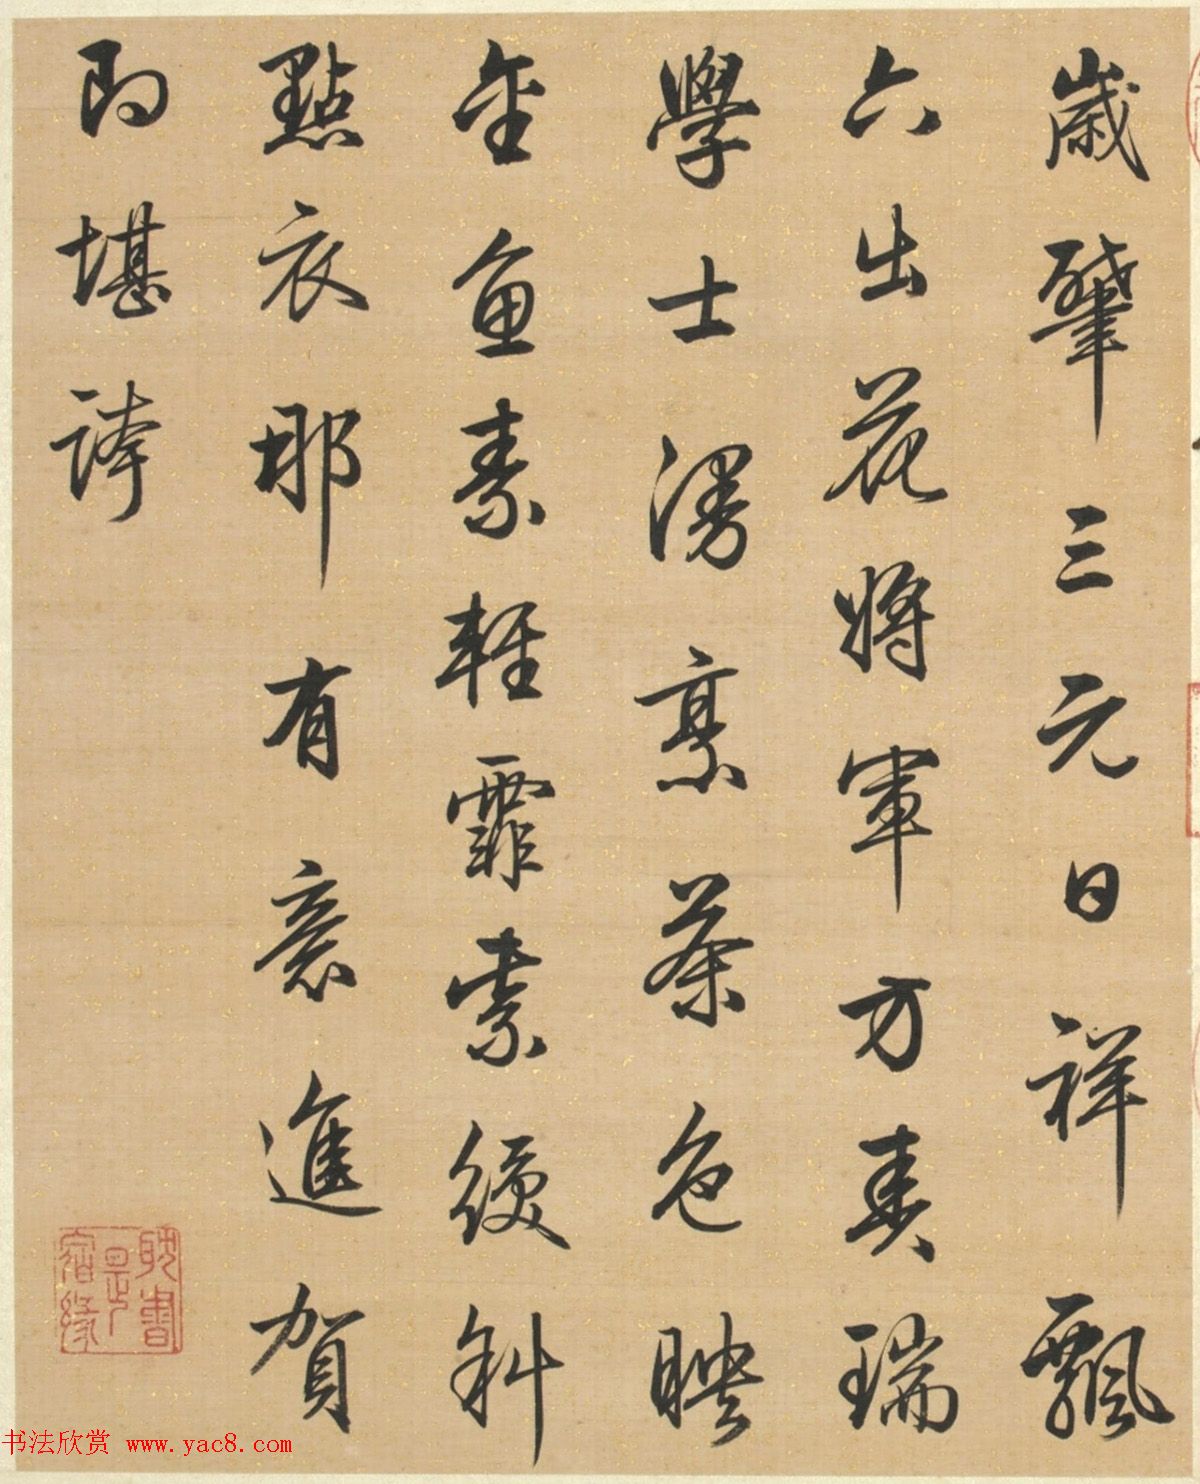 歲肇三元日祥飄
六出花將軍方奏瑞
學士漫烹茶色映
金魚素輕霏紫綬斜
點衣那有意進賀
即堪誇
耽書是宿緣
书法欣赏 www.yac8.com